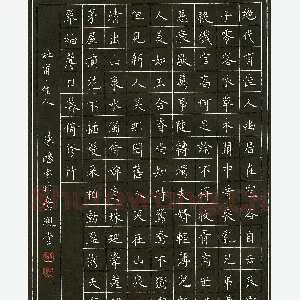 絕代有佳人幽居在空谷自云良家
子零落依草木關中昔喪亂兄弟遭
殺戮官高何足論不得收骨肉世情
惡衰歇萬事隨轉燭夫婿輕薄兒新
人美如玉合昏尚知時鴛鴦不獨宿
但見新人笑那聞舊人哭在山泉水
清出山泉水濁侍婢賣珠迴牽蘿補
茅屋摘花不插髮采柏動盈掬天寒
翠袖薄日暮倚修竹
杜甫佳人